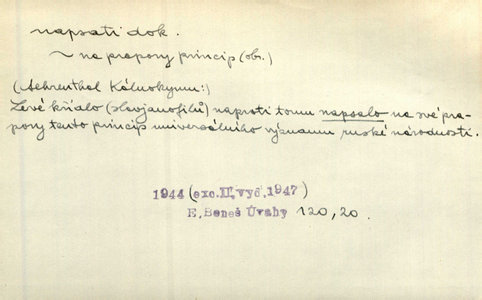 napsati dok.
~ na prapory princip (obr.)
(Aehrenthal Kálnokymu:)
Levé křídlo (slovjanofilů) naproti tomu napsalo na své pra-
pory tento princip universálního významu ruské národnosti.
1944 (exc.II, vyd, 1947)
E, Beneš Úvahy 120, 20.